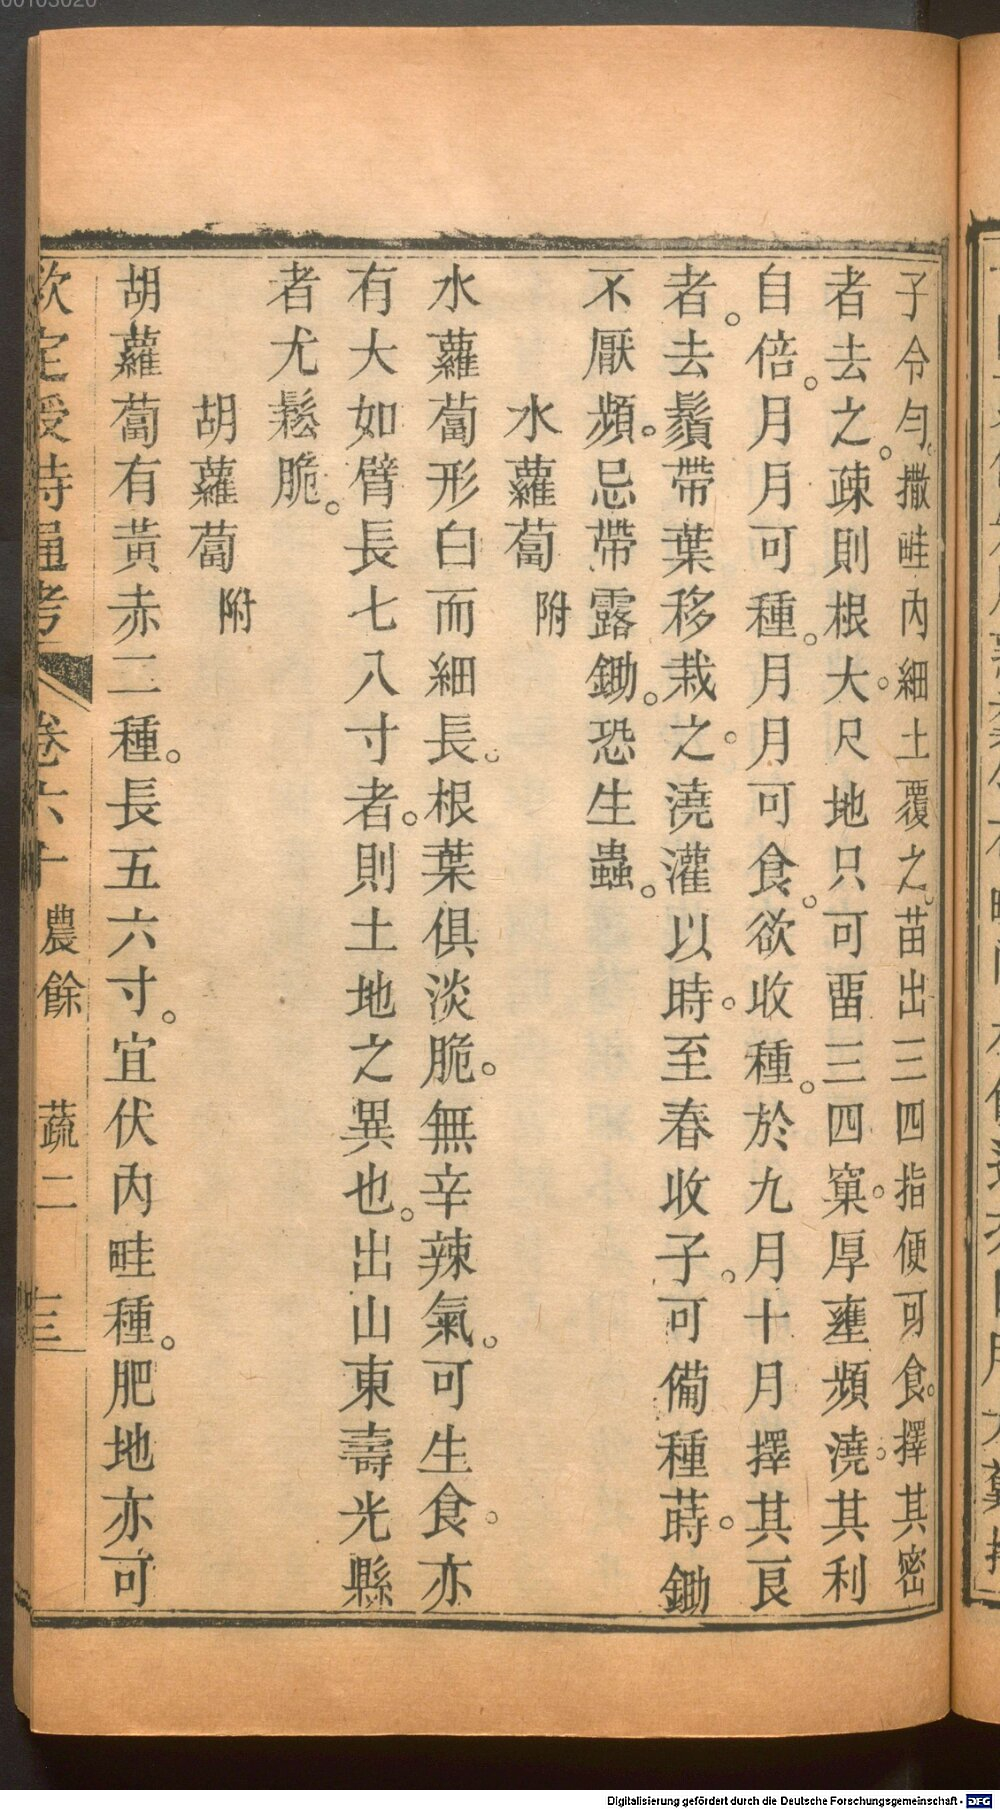 子令勻。撒畦內細土覆之。苗出三四指便可食。擇其密
者去之。疎則根大。尺地只可畱三四窠。厚壅頻澆。其利
自倍。月月可種。月月可食。欲收種。於九月十月擇其良
者。去鬚帶葉移栽之。澆灌以時。至春收子。可備種蒔。鋤
不厭頻。忌帶露鋤。恐生蟲。
水蘿蔔 附
水蘿蔔形白而細長。根葉俱淡脆。無辛辣氣。可生食。亦
有大如臂長七八寸者。則土地之異也。出山東壽光縣
者尤鬆脆。
胡蘿蔔 附
胡蘿蔔有黃赤二種。長五六寸。宜伏內畦種。肥地亦可
欽定授時通考 卷六十 農餘 蔬二 三
Digitalisierung gefördert durch die Deutsche Forschungsgemeinschaft - DFG